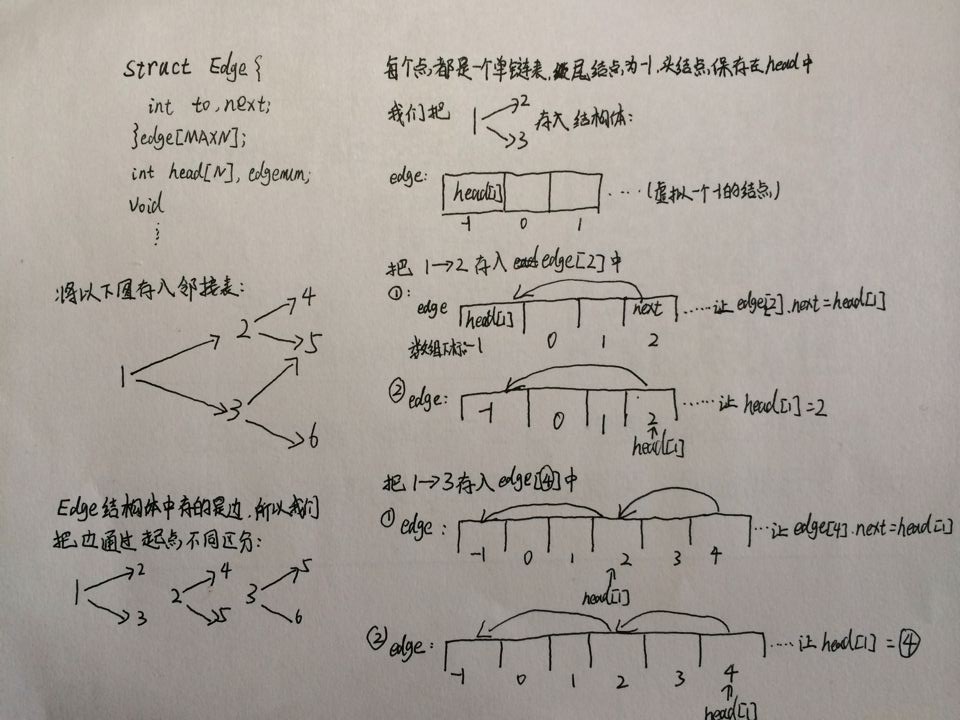 struct Edge {
int to, next;
}edge[MAXN];
int head[N], edgenum;
void
⋮
将以下图存入邻接表:
1 2 3 4 5 6
Edge结构体中存的是边,所以我们
把边通过起点不同区分:
1 2 3
2 4 5
3 5 6
每个点都是一个单链表,尾结点为-1,头结点保存在head中
我们把 1 2 3 存入结构体:
edge: head[1] ……(虚拟一个-1的结点)
-1 0 1
把 1→2 存入 edge[2]中
①:
edge head[1] next ……让edge[2].next=head[1]
数组下标:-1 0 1 2
② edge: -1 0 1 2 ……让 head[1]=2
head[1]
把 1→3 存入edge[④]中
① edge: …让edge[4].next=head[1]
-1 0 1 2 3 4
head[1]
② edge: ……让head[1] = ④
-1 0 1 2 3 4
head[1]